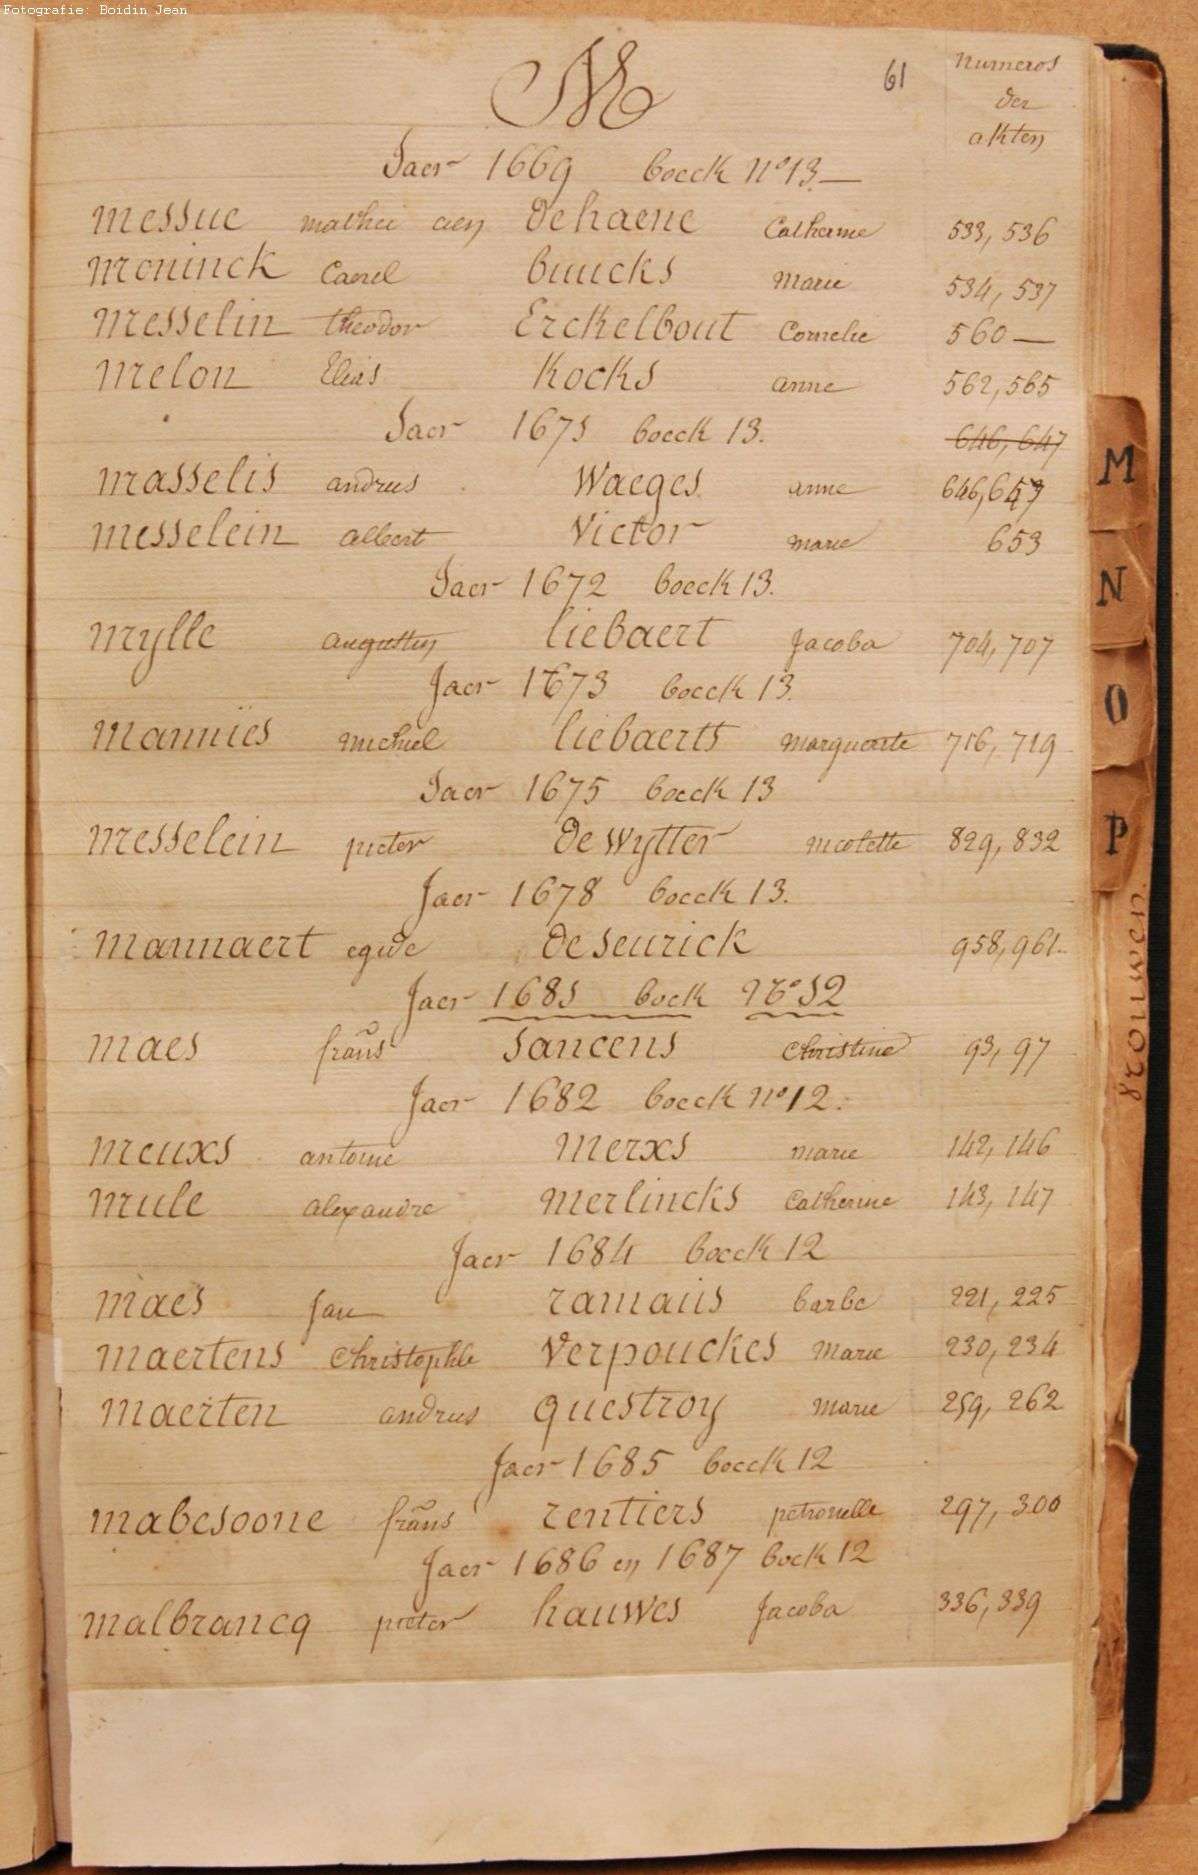 Fotografie: Boidin Jean
M
61
Numeros
der
akten
Jaer 1669 boeck no 13.—
messue mathei Dehaene Catherine 533, 536
moninck Carel buucks Marie 534, 537
messelin theodor Erckelbout Cornelie 560—
melon Elias Kocks anne 562, 565
Jaer 1671 boeck 13. 646, 647
masselis andries Waeges anne 646, 647
messelein albert Victor marie 653
Jaer 1672 boeck 13.
mylle augustin liebaert Jacoba 704, 707
Jaer 1673 boeck 13.
manniies michiel liebaerts marguerite 716, 719
Jaer 1675 boeck 13
messelein pieter De wytter nicolette 829, 832
Jaer 1678 boeck 13.
mannaert egide de seurick 958, 961.
Jaer 1681 boek No 12
maes frans Sancens Christine 93, 97
Jaer 1682 boeck no 12.
meuxs antoine merxs marie 142, 146
mule alexandre merlincks Catherine 143, 147
Jaer 1684 boeck 12
maes Jan ramaus barbe 221, 225
maertens Christophle Verpouckes Marie 230, 234
maerten andries questroy marie 259, 262
Jaer 1685 boeck 12
mabesoone frans rentiers petronelle 297, 300
Jaer 1686 en 1687 boek 12
malbrancq pieter hauwes Jacoba 336, 339
M
N
O
P
vrouwen